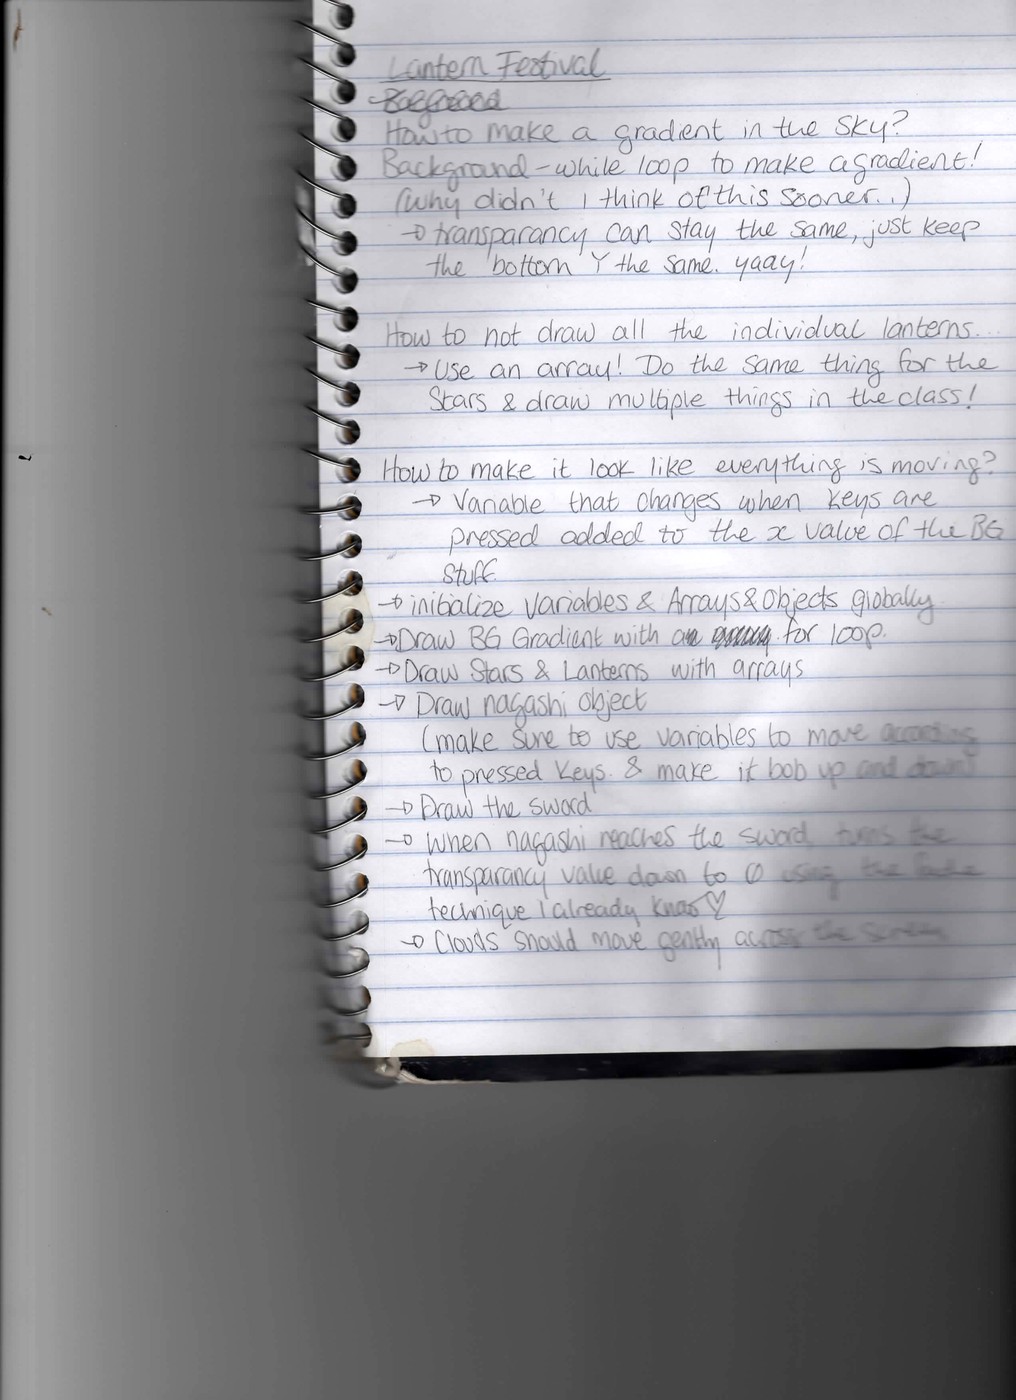 Lantern Festival
How to make a gradient in the sky?
Background - while loop to make a gradient!
(why didn't I think of this sooner..)
→ transparancy can stay the same, just keep
the bottom Y the same. yaay!
How to not draw all the individual lanterns...
→ Use an array! Do the same thing for the
Stars & draw multiple things in the class!
How to make it look like everything is moving?
→ Variable that changes when keys are
pressed added to the x value of the BG
stuff.
→ initialize variables & Arrays & Objects globally
→ Draw BG Gradient with a for loop.
→ Draw Stars & Lanterns with arrays
→ Draw nagashi object
(make sure to use variables to move according
to pressed keys. & make it bob up and down)
→ Draw the sword
→ When nagashi reaches the sword, turns the
transparancy value down to 0 using the
technique I already know ♡
→ Clouds should move gently across the screen